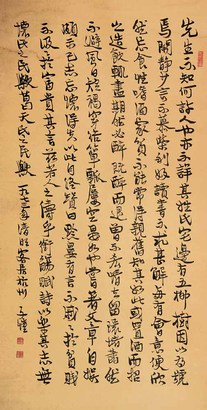 先生不知何許人也亦不詳其姓氏宅邊有五柳樹因以為號
焉閑靜少言不慕榮利好讀書不求甚解每有會意便欣
然忘食性嗜酒家貧不能常得親舊知其如此或置酒而招
之造飲輒盡期在必醉既醉而退曾不吝情去留環堵蕭然
不避風日短褐穿結簞瓢屢空晏如也嘗著文章自娛
頗示己志忘懷得失以此自終贊曰黔婁有言不戚戚於貧賤
不汲汲於富貴其言茲若人之儔乎銜觴賦詩以樂其志無
懷氏之民歟葛天氏之民歟 杭州